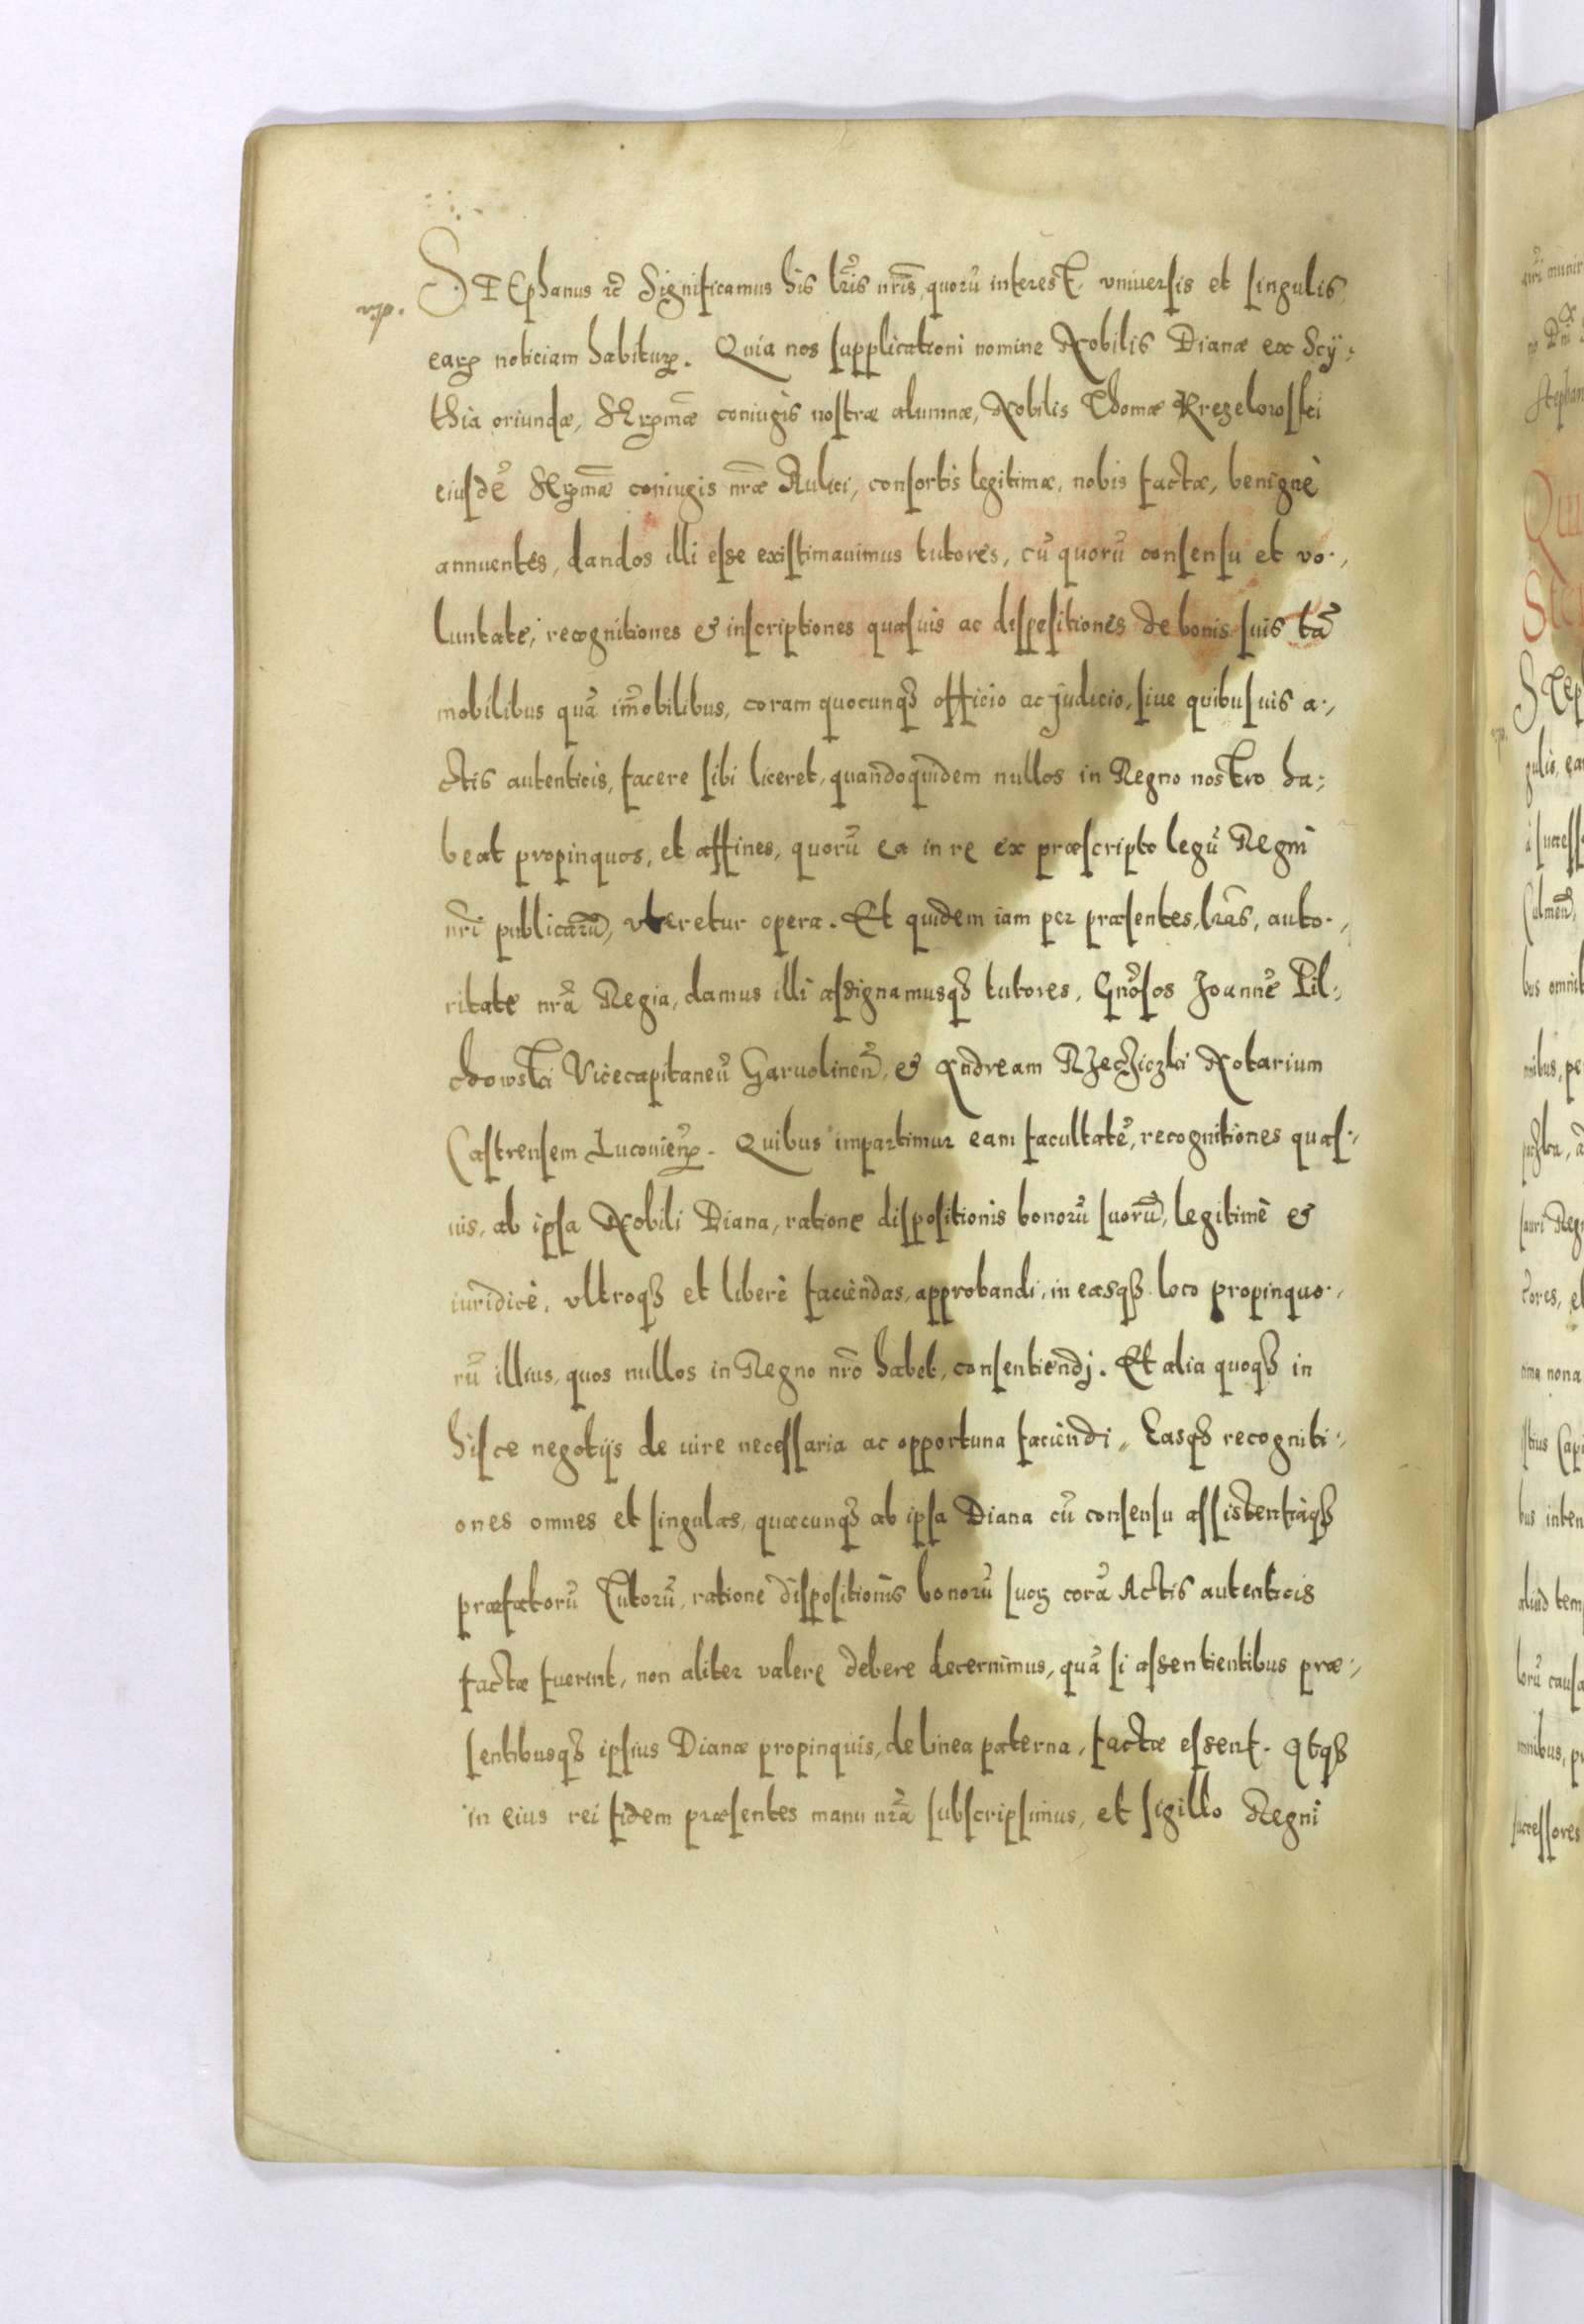 STEphanus rc̄ Significamus his lr̃is nr̃is, quorũ interest, vniuersis et singulis
earꝝ noticiam habiturꝝ. Quia nos supplicationi nomine Nobilis Dianæ ex Scÿ:
thia oriundæ, Serꝝmæ coniugis nostræ alumnæ, Nobilis Thomæ Krezelowski
eiusdẽ Serꝝmæ coniugis nr̃æ Aulici, consortis legitimæ, nobis factæ, benignè
annuentes, dandos illi esse existimauimus tutores, cũ quorũ consensu et vo:,
luntate, recognitiones & inscriptiones quasuis ac dispositiones de bonis suis tã
mobilibus quã im̃obilibus, coram quocunqȝ officio ac judicio, siue quibusuis a:,
ctis autenticis, facere sibi liceret, quandoquidem nullos in Regno nostro ha:
beat propinquos, et affines, quorũ ea in re ex præscripto legũ Regni
nr̃i publicarũ, vteretur opera. Et quidem iam per præsentes, lr̃as, auto:,
ritate nr̃a Regia, damus illi assignamusqȝ tutores, Gnõsos Joannẽ Pil:
chowski Vicecapitaneũ Garuolineñ, & Andream Rzeczićzki Notarium
Castrensem Lucouieñ. Quibus impartimur eam facultatẽ, recognitiones quas:,
uis, ab ipsa Nobili Diana, ratione dispositionis bonorũ suorũ, legitimè &
iuridicè, vltroqȝ et liberè faciendas, approbandi, in easqȝ loco propinquo:,
rũ illius, quos nullos in Regno nr̃o habet, consentiendj. Et alia quoqȝ in
hisce negotijs de iure necessaria ac opportuna faciendi, Easqȝ recogniti:,
ones omnes et singulas, quæcunqȝ ab ipsa Diana cũ consensu assistentiàqȝ
præfatorũ Tutorũ, ratione dispositionis bonorũ suoꝝ corã Actis autenticis
factæ fuerint, non aliter valere debere decernimus, quã si assentientibus præ:,
sentibusqȝ ipsius Dianæ propinquis, de linea paterna, factæ essent. Atqȝ
in eius rei fidem præsentes manu nr̃a subscripsimus, et sigillo Regni